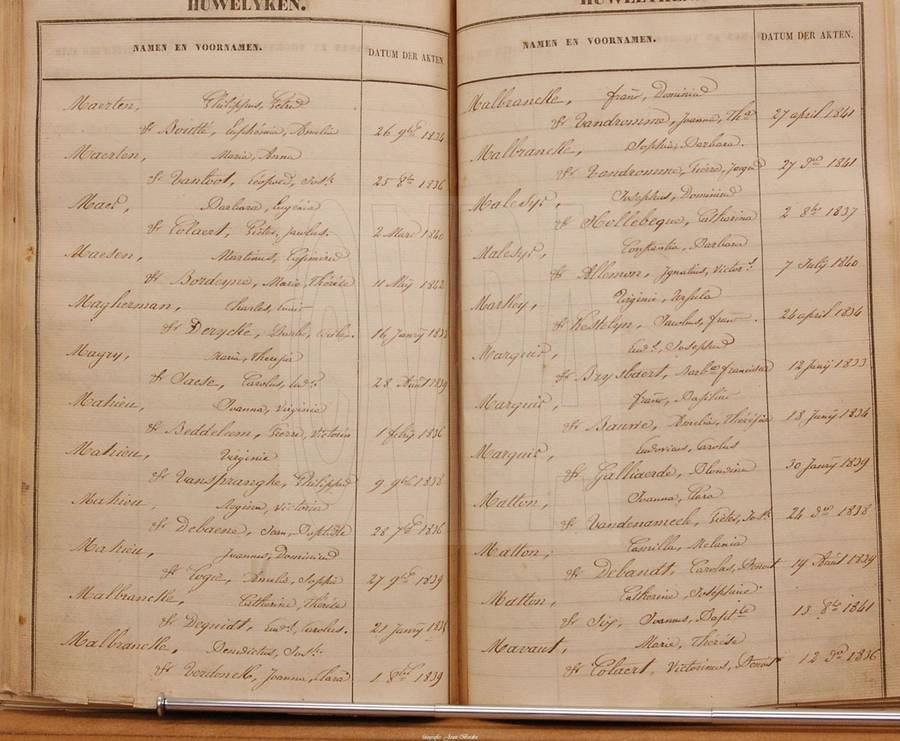 HUWELYKEN.
NAMEN EN VOORNAMEN. DATUM DER AKTEN.
Maerten, Philippus, Petrus
& Boutté, Euphémie, Amelia 26 9bre 1834
Maerten, Marie, Anna
& Vantoot, Léopold, Josh. 25 8bre 1836
Maes, Barbara, Eugénia
& Colaert, Pieter, Jacobus. 2 Mars 1840
Maesen, Martinus, Casimired
& Bordeyne, Marie, Thérèse 11 Mey 1842
Magherman, Charles, Louis
& Derycke, 16 January 1833
Magry, Maria, Theresia
& Saese, Carolus, Ludcs 28 Août 1839
Mahieu, Joanna, Virginie
& Beddeleem, Pierre, Victorin 1 feby 1836
Mahieu, Virginie
& Vanspranghe, Philippus 9 9bre 1838
Mahieu, Victorine
& Debaene, Jean, Baptiste 28 7bre 1836
Mahieu, Joannes, Dominicus
& Logie, Amelia, Sophie 27 9bre 1839
Malbrancke, Catherine, Thérèse
& Dequidt, Ludcs, Carolus. 21 January
Malbrancke, Benedictus, Josh.
& Verdonck, Joanna, Clara 1 8bre 1839
HUWELYKEN.
NAMEN EN VOORNAMEN. DATUM DER AKTEN.
Malbrancke, franc, Dominicus
& Vandromme, Joanna, Tha 27 april 1841
Malbrancke, Sophie, Barbara.
& Vandromme, Pierre, Jacques 27 1841
Malesys, Josephus, Dominicus
& Hollebeque, Catharina 2 8bre 1837
Malesys, Constantia, Barbara
& Allemon, Ignatius, Victor 7 July 1840
Markey, Virginie, Ursula
& Kestelyn, Jacobus, franc. 24 april 1834
Marquis, Ludcs, Josephus
& Brysbaert, Barba francisca 12 Juny 1833
Marquis, franc, Baptiste
& Bauwe, Amelia, Thérésia 18 Juny 1834
Marquis, Ludovicus, Carolus
& Galliaerde, Blondina 30 January 1839
Matton, Joanna, Clara
& Vandenameele, Pieter, Josh 24 1838
Matton, Camilla, Melania
& Debandt, Carolus, Benoit 14 Août 1839
Matton, Catherine, Joséphine
& Six, Joannes, Baptte 13 8bre 1841
Mavaut, Marie, Thérèse
& Colaert, Victorinus, Benoit 12 1836